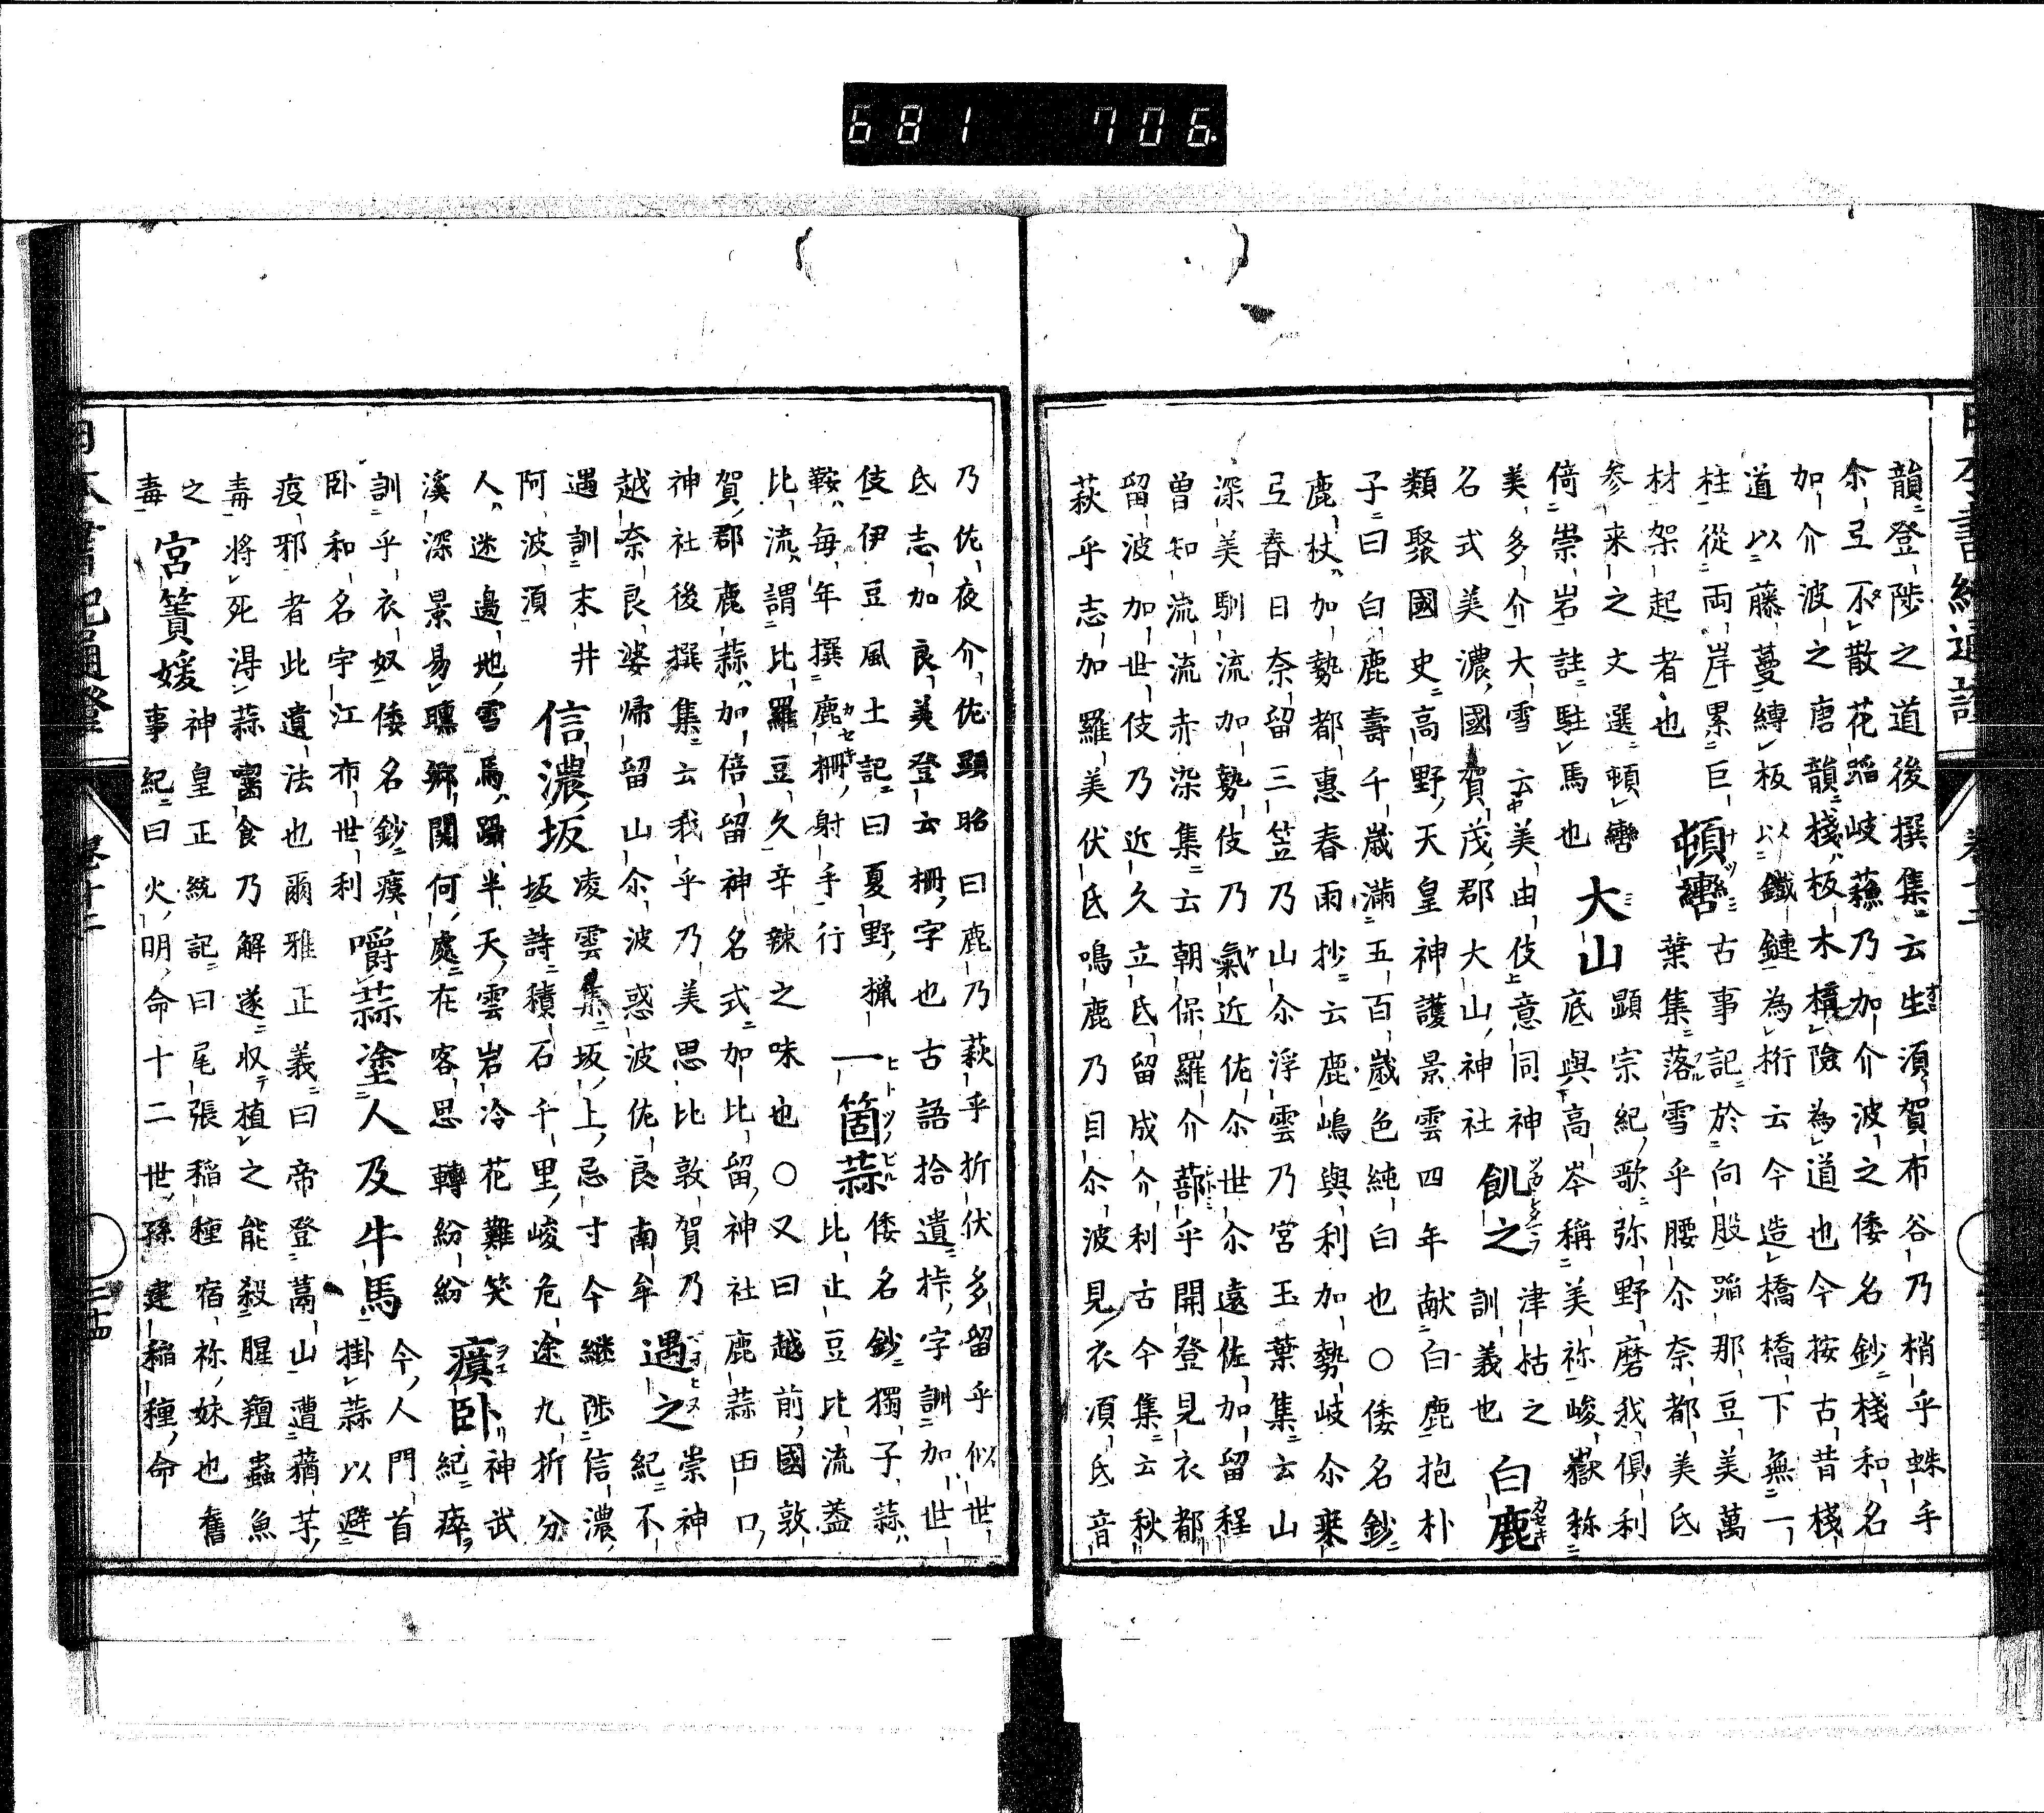 韻登陟之道後撰集云生須賀布谷乃梢乎蛛手
尒弖不散花蹈岐蘓乃加介波之倭名鈔棧和名
加介波之唐韻棧板木構險為道也今按古昔棧
道以藤蔓縛板以鐵鏈為桁云今造橋橋下無一
柱從兩岸累巨
材架起者也
頓轡
古事記於向股蹈那豆美萬
葉集落雪乎腰尒奈都美氐
参来之文選頓轡
倚嵩岩註駐馬也
大山
顕宗紀歌弥野磨我俱利
底與高岑稱美祢峻嶽称
美多介大雪云美由伎意同神
名式美濃國賀茂郡大山神社
飢之
津枯之
訓義也
白鹿
類聚國史高野天皇神護景雲四年献白鹿抱朴
子曰白鹿壽千歳満五百歳色純白也○倭名鈔
鹿杖加勢都惠春雨抄云鹿嶋與利加勢岐尒乗
弖春日奈留三笠乃山尒浮雲乃宮玉葉集云山
深美馴流加勢伎乃氣近佐尒世尒遠佐加留程
曽知流流赤染集云朝保羅介蔀乎開登見衣都
留波加世伎乃近久立氐留成介利古今集云秋
萩乎志加羅美伏氐鳴鹿乃目尒波見衣須氐音
乃佐夜介佐顕昭曰鹿乃萩乎折伏多留乎似世
氐志加良美登云柵字也古語拾遺桛字訓加世
伎伊豆風土記曰夏野猟
鞍毎年撰鹿柵射手行
一箇蒜
倭名鈔獨子蒜
比止豆比流蓋
比流謂比羅豆久辛辣之味也○又曰越前國敦
賀郡鹿蒜加倍留神名式加比留神社鹿蒜田口
神社後撰集云我乎乃美思比敦賀乃
越奈良婆帰留山尒波惑波佐良南牟
遇之
崇神
紀不
遇訓末井
阿波須
信濃坂
凌雲集坂上忌寸今継陟信濃
坂詩積石千里峻危途九折分
人迷邊地雪馬躡半天雲岩冷花難笑
溪深景易曛郷関何處在客思轉紛紛
瘼臥
神武
紀瘁
訓乎衣奴倭名鈔瘼
臥和名宇江布世利
嚼蒜塗人及牛馬
今人門首
掛蒜以避
疫邪者此遺法也爾雅正義曰帝登蒿山遭蕕芋
毒将死得蒜嚙食乃解遂収植之能殺腥羶蟲魚
之
毒
宮簀媛
神皇正統記曰尾張稲種宿祢妹也舊
事紀曰火明命十二世孫建稲種命